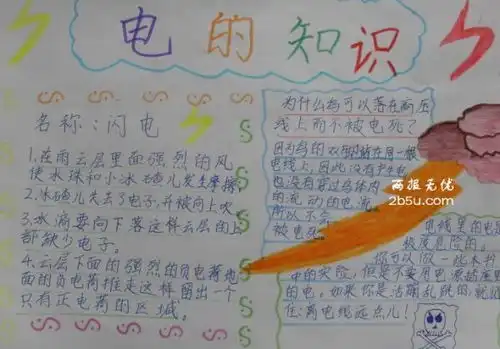 电的知识
名称：闪电
1.在雨云层里面强烈的风
使水珠和小冰碴儿发生摩擦
2.冰碴儿失去了电子，并被向上吹
3.水滴要向下落这样云层的上
部缺少电子。
4.云层下面的强烈的负电荷把地
面的负电荷推走这样留出一个
只有正电荷的区域。
为什么鸟可以落在高压
线上而不被电死？
因为鸟的双脚站在同一根
电线上，因此没有产生电
也没有穿过鸟体内
的流动的电流
所以不会
被电死。
两报无忧
2b5u.com
电线里的电是
极度危险的。
你可以做一些本书
中的实验，但是不要用电源插座里
的电。如果你是活蹦乱跳的，就记
住：离电线远点儿！